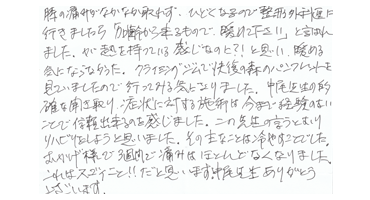 膝の痛みがなかなか取れず、ひどくなるので整形外科に
行きましたら「加齢から来るもので、暖めて下さい」と言われ
ました。が、熱を持っている感じなのと?!と思い、暖める
気にならなかった。クライミングジムで快復の森のパンフレットを
見ていましたので行ってみる気になりました。中尾先生の的
確な聞き取り、症状に対する施術は今まで経験のない
ことで信頼出来るなと感じました。この先生の言うとおり
リハビリをしようと思いました。その主なことは冷やすことでした。
おかげ様で3週間で痛みはほとんどなくなりました。
これはスゴイこと!!だと思います。中尾先生ありがとう
ございます。